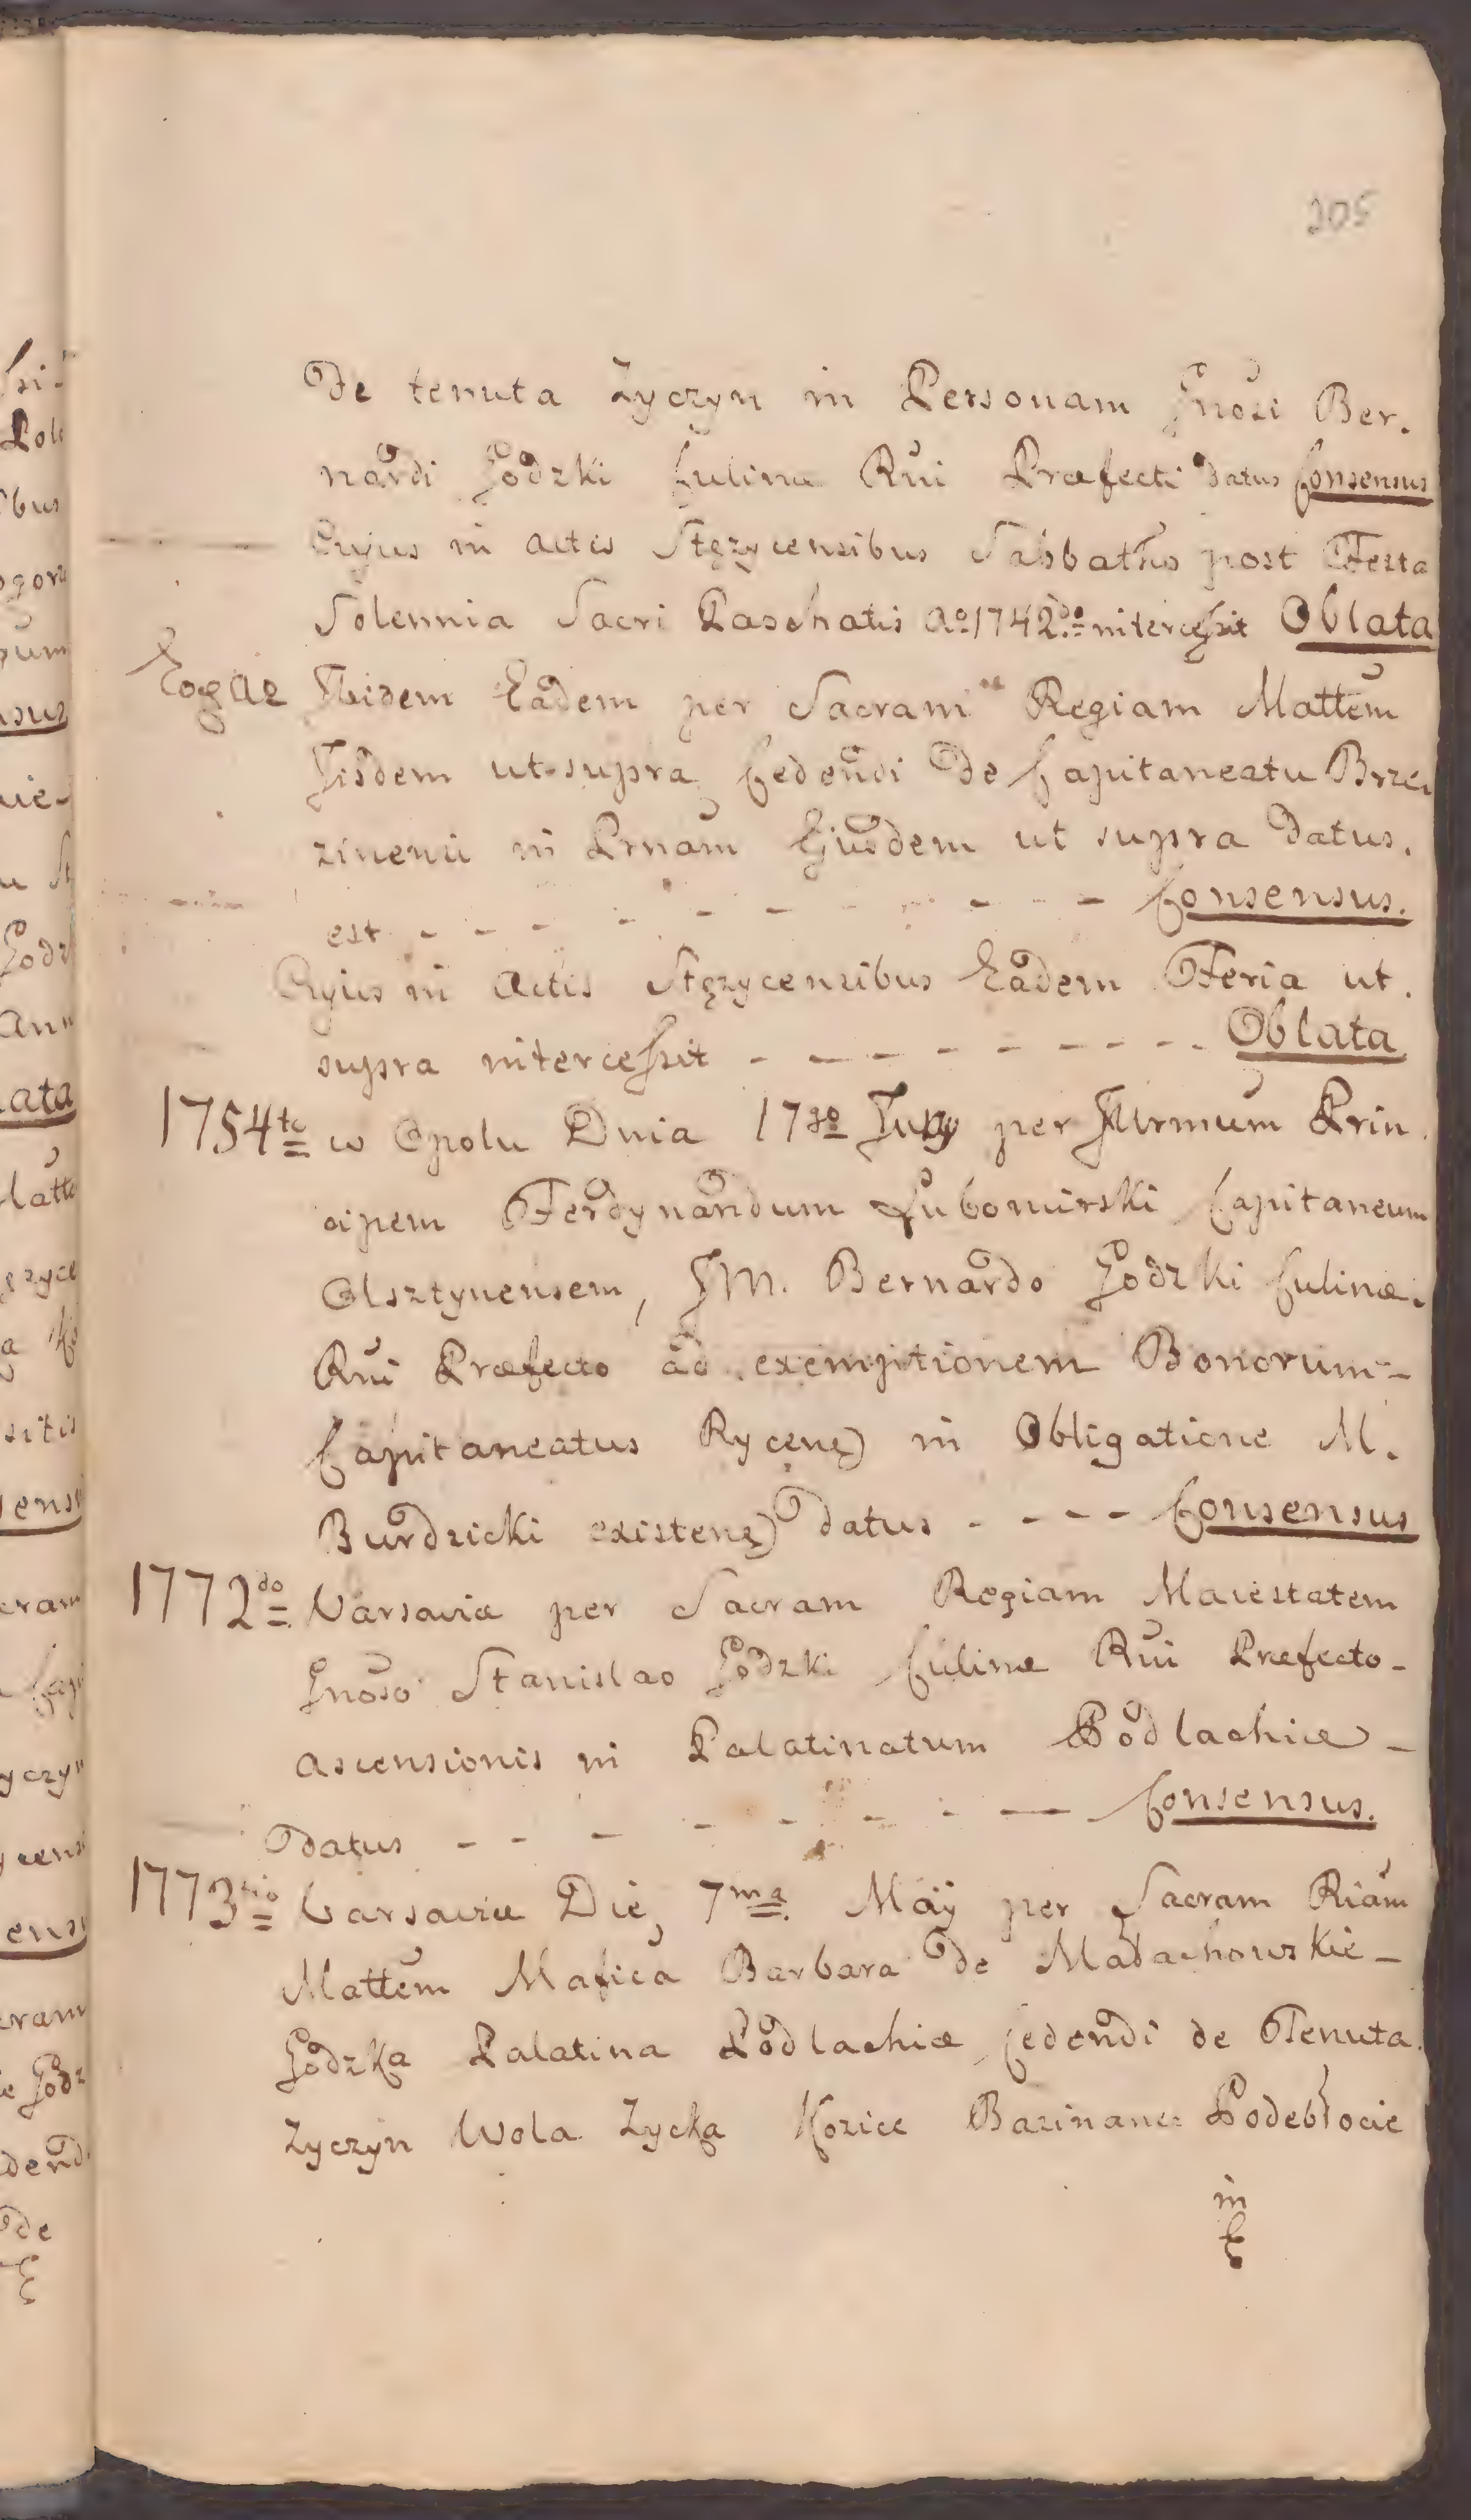 205
De tenuta Życzyn in Personam Gnosi Ber.
nardi Godzki Culinæ Rui Præfecti datus Consensus
Cujus in actis Stęzycensibus Sabbatho post Festa
Solennia Sacri Paschatis Ao 1742do intercessit Oblata
Eoqae Ibidem Eadem per Sacram Regiam Mattem
Iisdem ut supra Cedendi de Capitaneatu Brze
zinenii in Prnam Ejusdem ut supra datus.
est - - - - - - - - - Consensus.
Cujus in Actis Stęzycensibus Eadem Feria ut.
supra intercessit - - - - - - - - - Oblata
1754to w Opolu Dnia 17go July per Jllrmum Prin
cipem Ferdynandum Lubomirski Capitaneum
Olsztynensem, GM. Bernardo Godzki Culinæ.
Rui Præfecto ad exemptionem Bonorum -
Capitaneatus Rycen) in Obligatione M.
Burdzicki existen) datus - - - - Consensus
1772do Varsaviæ per Sacram Regiam Maiestatem
Gnoso Stanislao Godzki Culinæ Rui Præfecto -
ascensionis in Palatinatum Podlachiæ -
datus - - - - - - - - Consensus.
1773tio Varsaviæ Die, 7ma Maÿ per Sacram Riam
Mattem Mafica Barbara de Madachowskie -
Godzka Palatina Podlachiæ Cedendi de Tenuta
Zyczyn Wola Zycka Kozice Bazinane Podebłocie
in